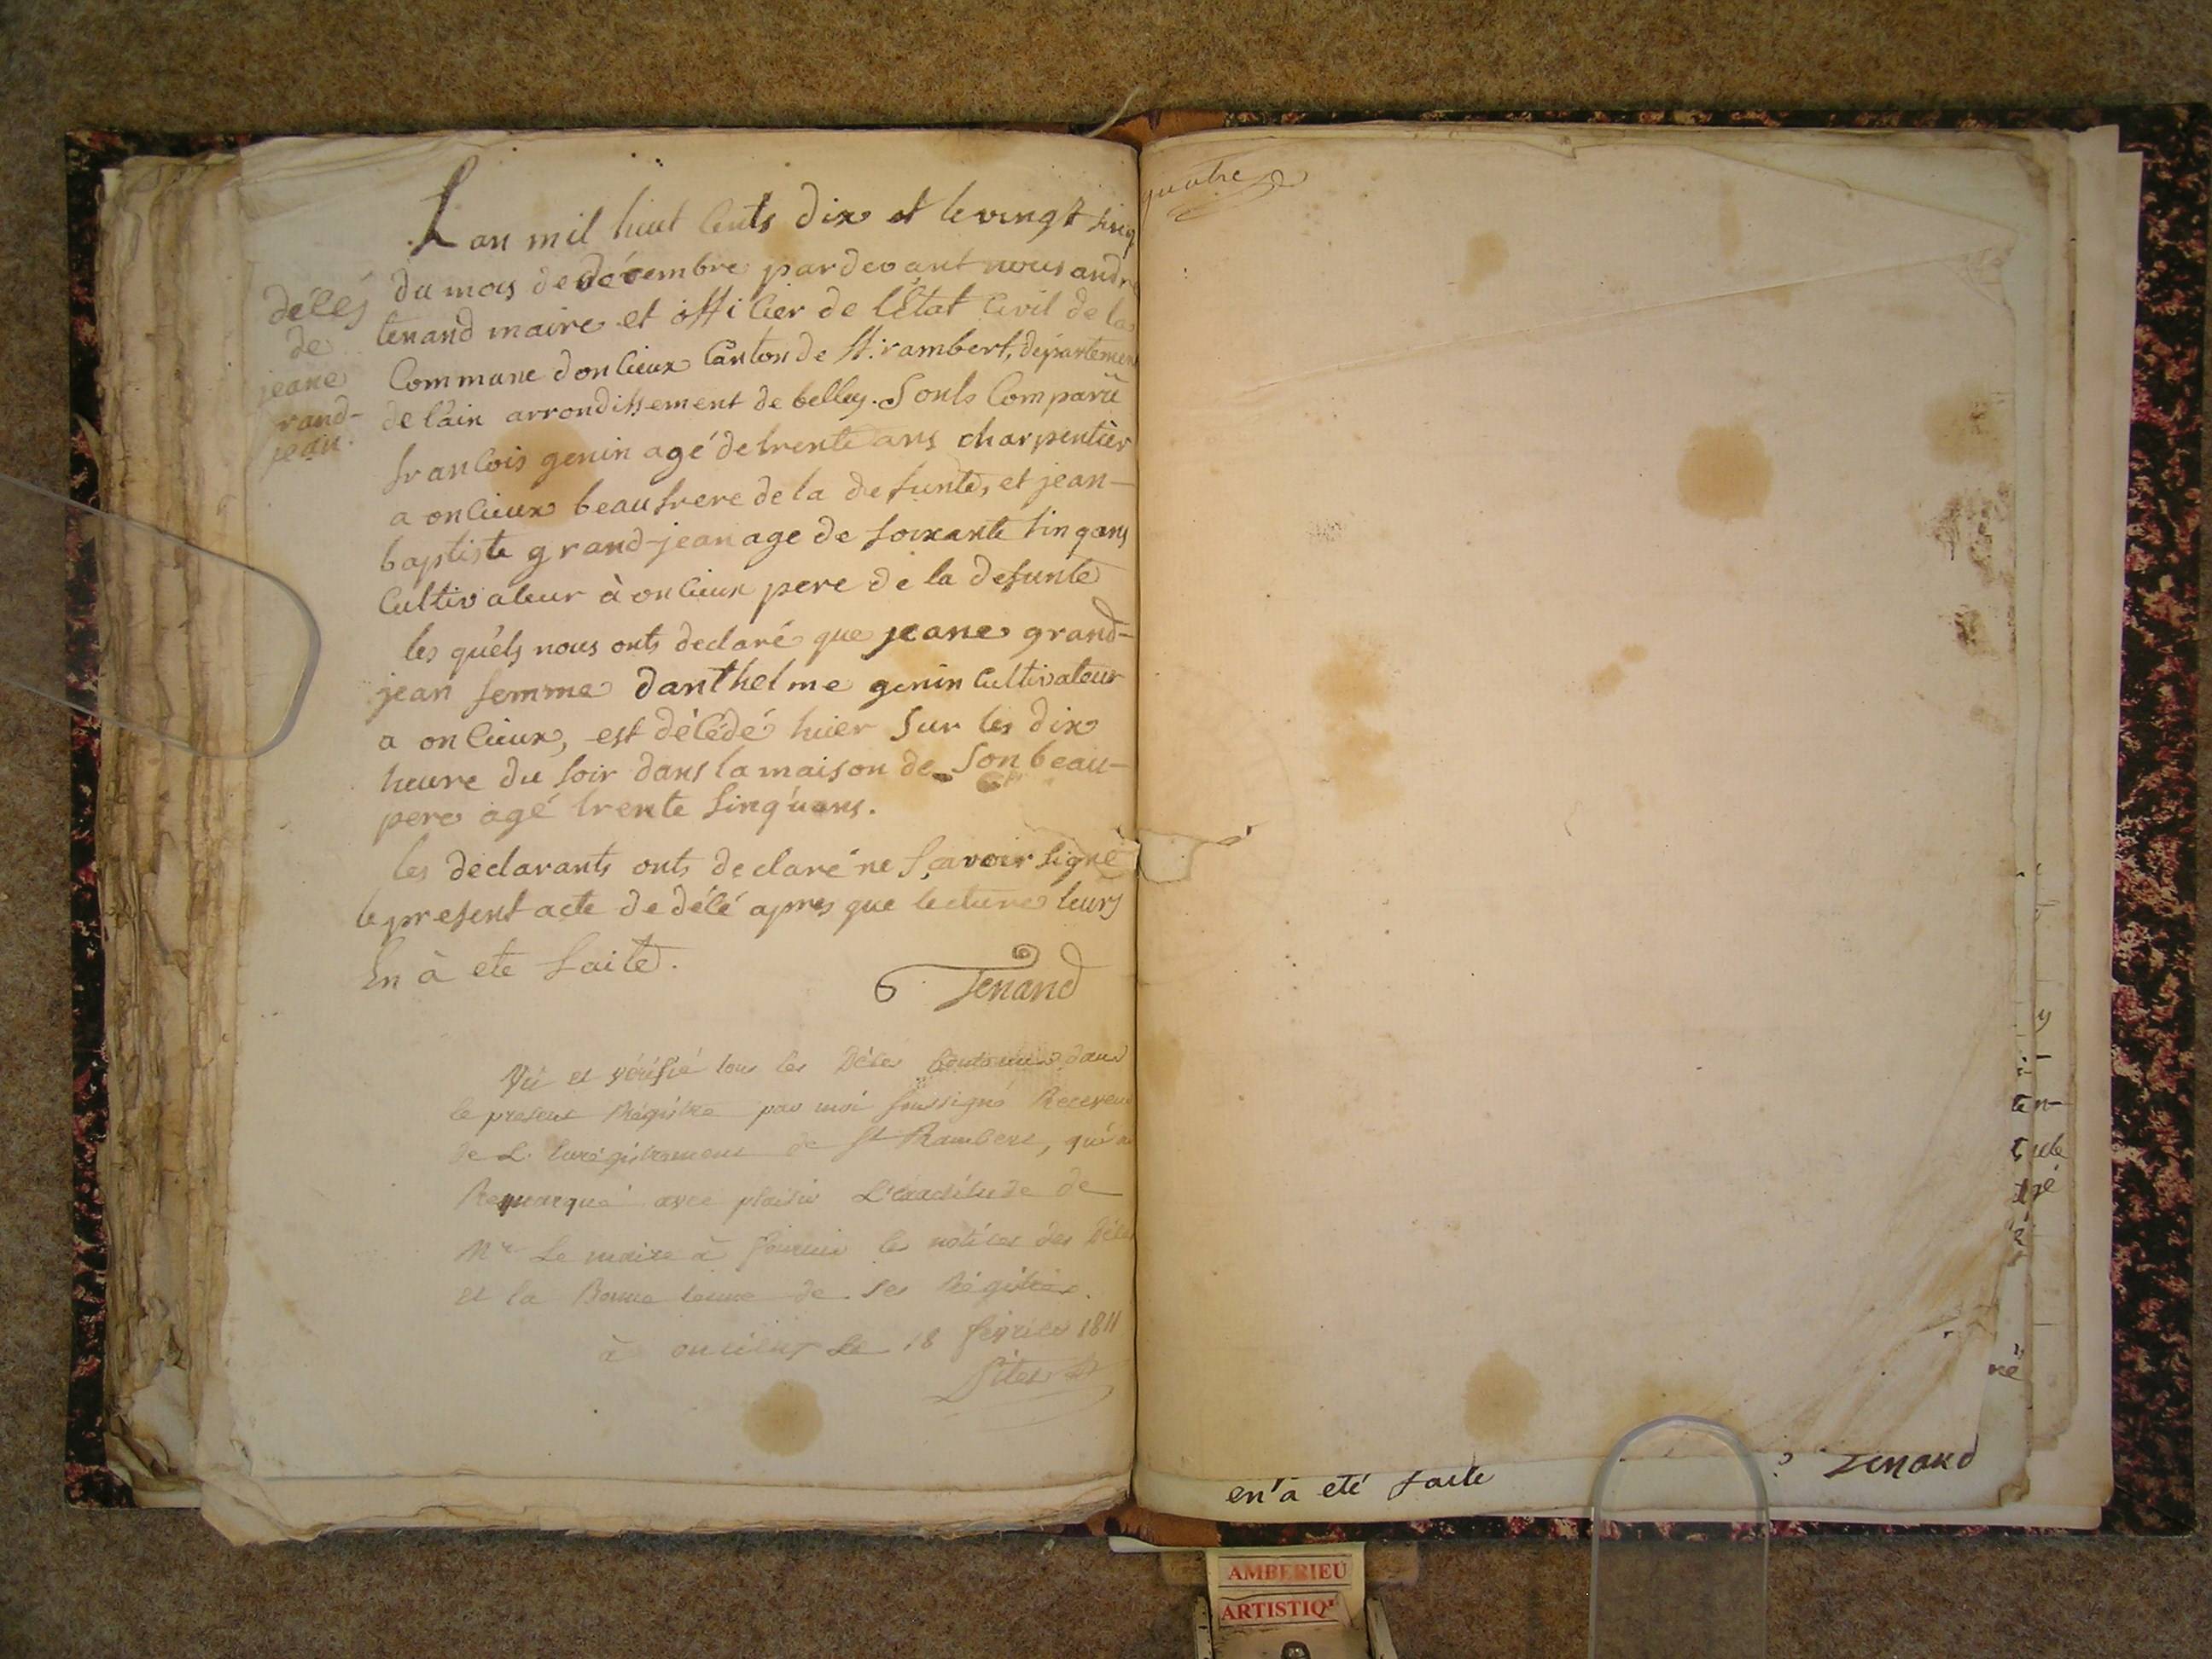 Lan mil huit Cents dix et le vingt sinq
du mois de décembre pardevant nous andré
tenand maire et officier de l'État Civil de la
Commune d'onlieux Canton de St. rambert, département
de l'ain arrondissement de belley. Sonts Comparü
francois genin agé de trente ans charpentier
a onlieux beaufrere de la defunte, et jean-
baptiste grand-jean age de soixante sinq ans
Cultivateur à onlieux pere de la defunte
les quels nous onts declaré que jeane grand-
jean femme danthelme genin Cultivateur
a onlieux, est décédé hier sur les dix
heure du soir dans la maison de son beau-
pere agé trente sinq'uans.
les declarants onts declaré ne sçavoir signé
le present acte de décé apres que lecture leurs
En à ete faite.
Tenand
décés
de
jeane
grand-
jean.
Vü et vérifié tous les Décès Contenus dans
le present Régistre par moi soussigné Receveur
de L'Enrégistrement de St Rambert, qui a
Remarqué avec plaisir L'exactitude de
Mr Le maire à fournir les notices des Décès
et la Bonne tenue de ses Régistres.
à oncieux Le 18 février 1811
quatre
ten-
né
en'a eté faite Tenand
AMBERIEU
ARTISTIQ